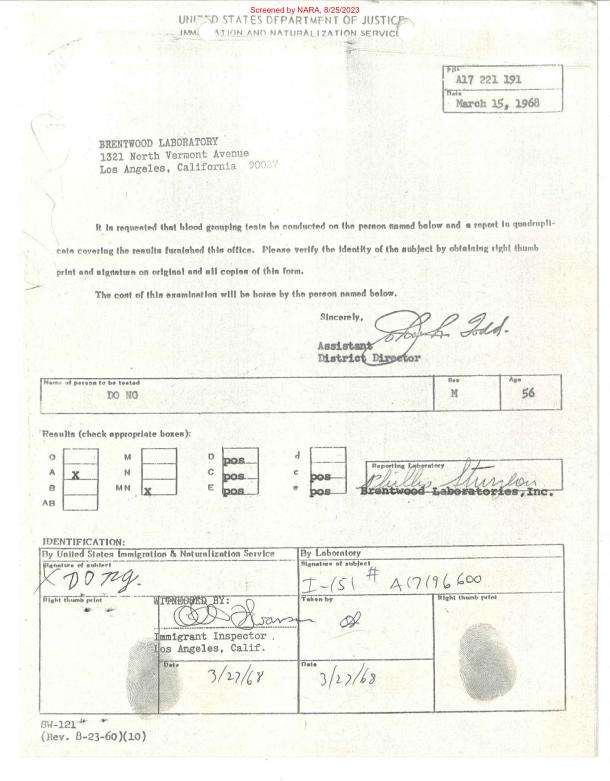 Screened by NARA, 8/25/2023
UNITED STATES DEPARTMENT OF JUSTICE
IMM ATION AND NATURALIZATION SERVICE
File
A17 221 191
Date
March 15, 1968
BRENTWOOD LABORATORY
1321 North Vermont Avenue
Los Angeles, California 90027
It is requested that blood grouping tests be conducted on the person named below and a report in quadrupli-
cate covering the results furnished this office. Please verify the identity of the subject by obtaining right thumb
print and signature on original and all copies of this form.
The cost of this examination will be borne by the person named below.
Sincerely,
Todd.
Assistant
District Director
Name of person to be tested
DO NG
Sex
M
Age
56
Results (check appropriate boxes):
O
A X
B
AB
M
N
MN X
D pos
C pos
E pos
d
c pos
e pos
Reporting Laboratory
Phyllis
Brentwood Laboratories,Inc.
IDENTIFICATION:
By United States Immigration & Naturalization Service
By Laboratory
Signature of subject
X DO ng.
Signature of subject
I-151 # A17196600
Right thumb print
WITNESSED BY:
Immigrant Inspector.
Los Angeles, Calif.
Date
3/27/68
Taken by
Date
3/27/68
Right thumb print
SW-121
(Rev. 8-23-60)(10)